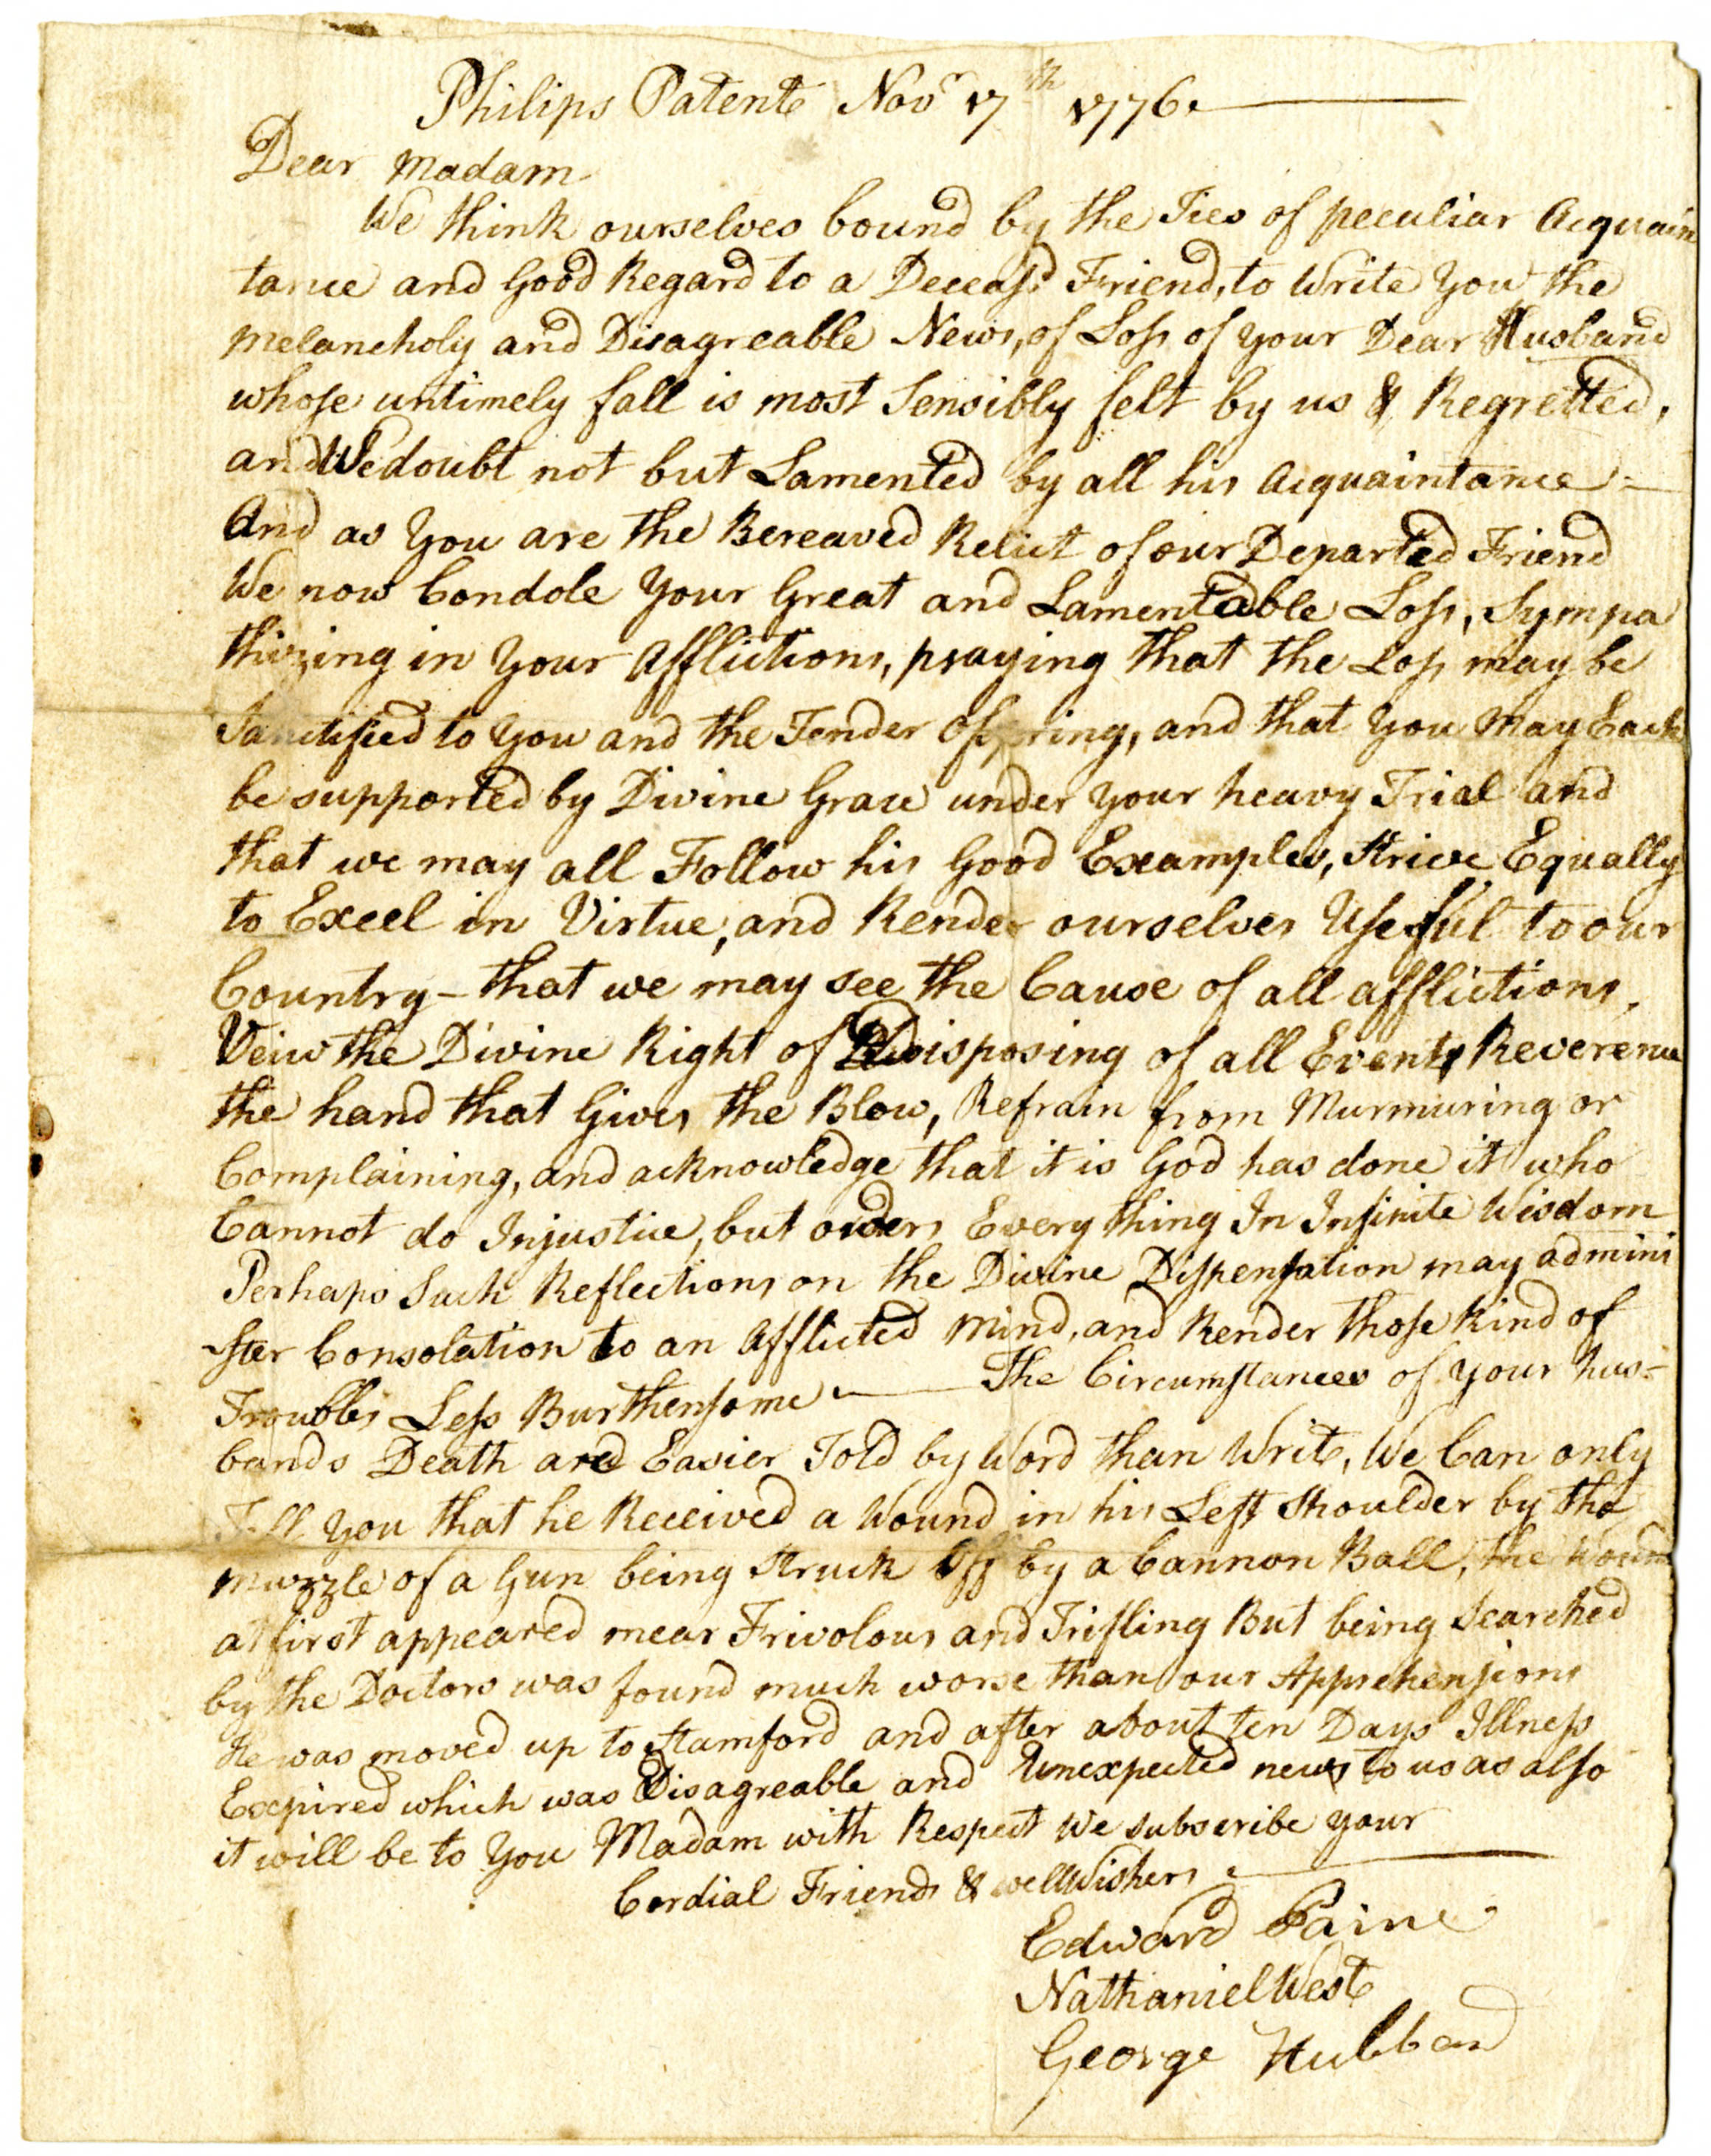 Philips Patent Novr 17th 1776.
Dear Madam
We think ourselves bound by the Ties of peculiar Acquain
tance and Good Regard to a Deceasd Friend, to Write You the
Melancholy and Disagreable News, of Loss of your Dear Husband
whose untimely fall is most Sensibly felt by us & Regretted,
and We doubt not but Lamented by all his Acquaintance =
And as You are the Bereaved Relict of our Departed Friend
We now Condole Your Great and Lamentable Loss, Sympa
thizing in Your Afflictions, praying that the Loss may be
Sanctified to You and the Tender Ofspring, and that You May Each
be supported by Divine Grace under your heavy Trial and
that we may all Follow his Good Examples, Strive Equally
to Excel in Virtue, and Render ourselves Useful to our
Country - that we may see the Cause of all afflictions,
Veiw the Divine Right of Disposing of all Events, Reverence
the hand that Gives the Blow, Refrain from Murmuring or
Complaining, and acknowledge that it is God has done it who
Cannot do Injustice, but orders Every thing In Infinite Wisdom
Perhaps Such Reflections on the Divine Dispensation may admini
ster Consolation to an Afflicted Mind, and Render those Kind of
Troubles Less Burthensome — The Circumstances of your hus-
bands Death are Easier Told by Word than Writ, We Can only
Tell You that he Received a Wound in his Left Shoulder by the
Muzzle of a Gun being Struck Off by a Cannon Ball, the Wound
at first appeared mear Frivolous and Trifling But being Searched
by the Doctors was found much worse than our Apprehensions
He was moved up to Stamford and after about ten Days Illness
Expired which was Disagreable and Unexpected news to us as also
it will be to You Madam with Respect We subscribe your
Cordial Friends & well Wishers
Edward Paine
Nathaniel West
George Hubbard